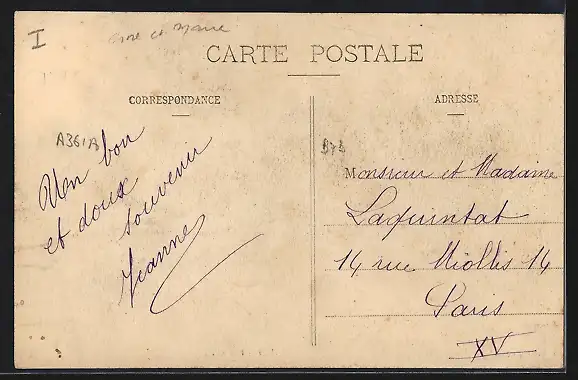 I
et Marne
CARTE POSTALE
CORRESPONDANCE
ADRESSE
A361A
Un bon
et doux
souvenir
Jeanne
Monsieur et Madame
Laquintat
14 rue Miollis 14
Paris
XV